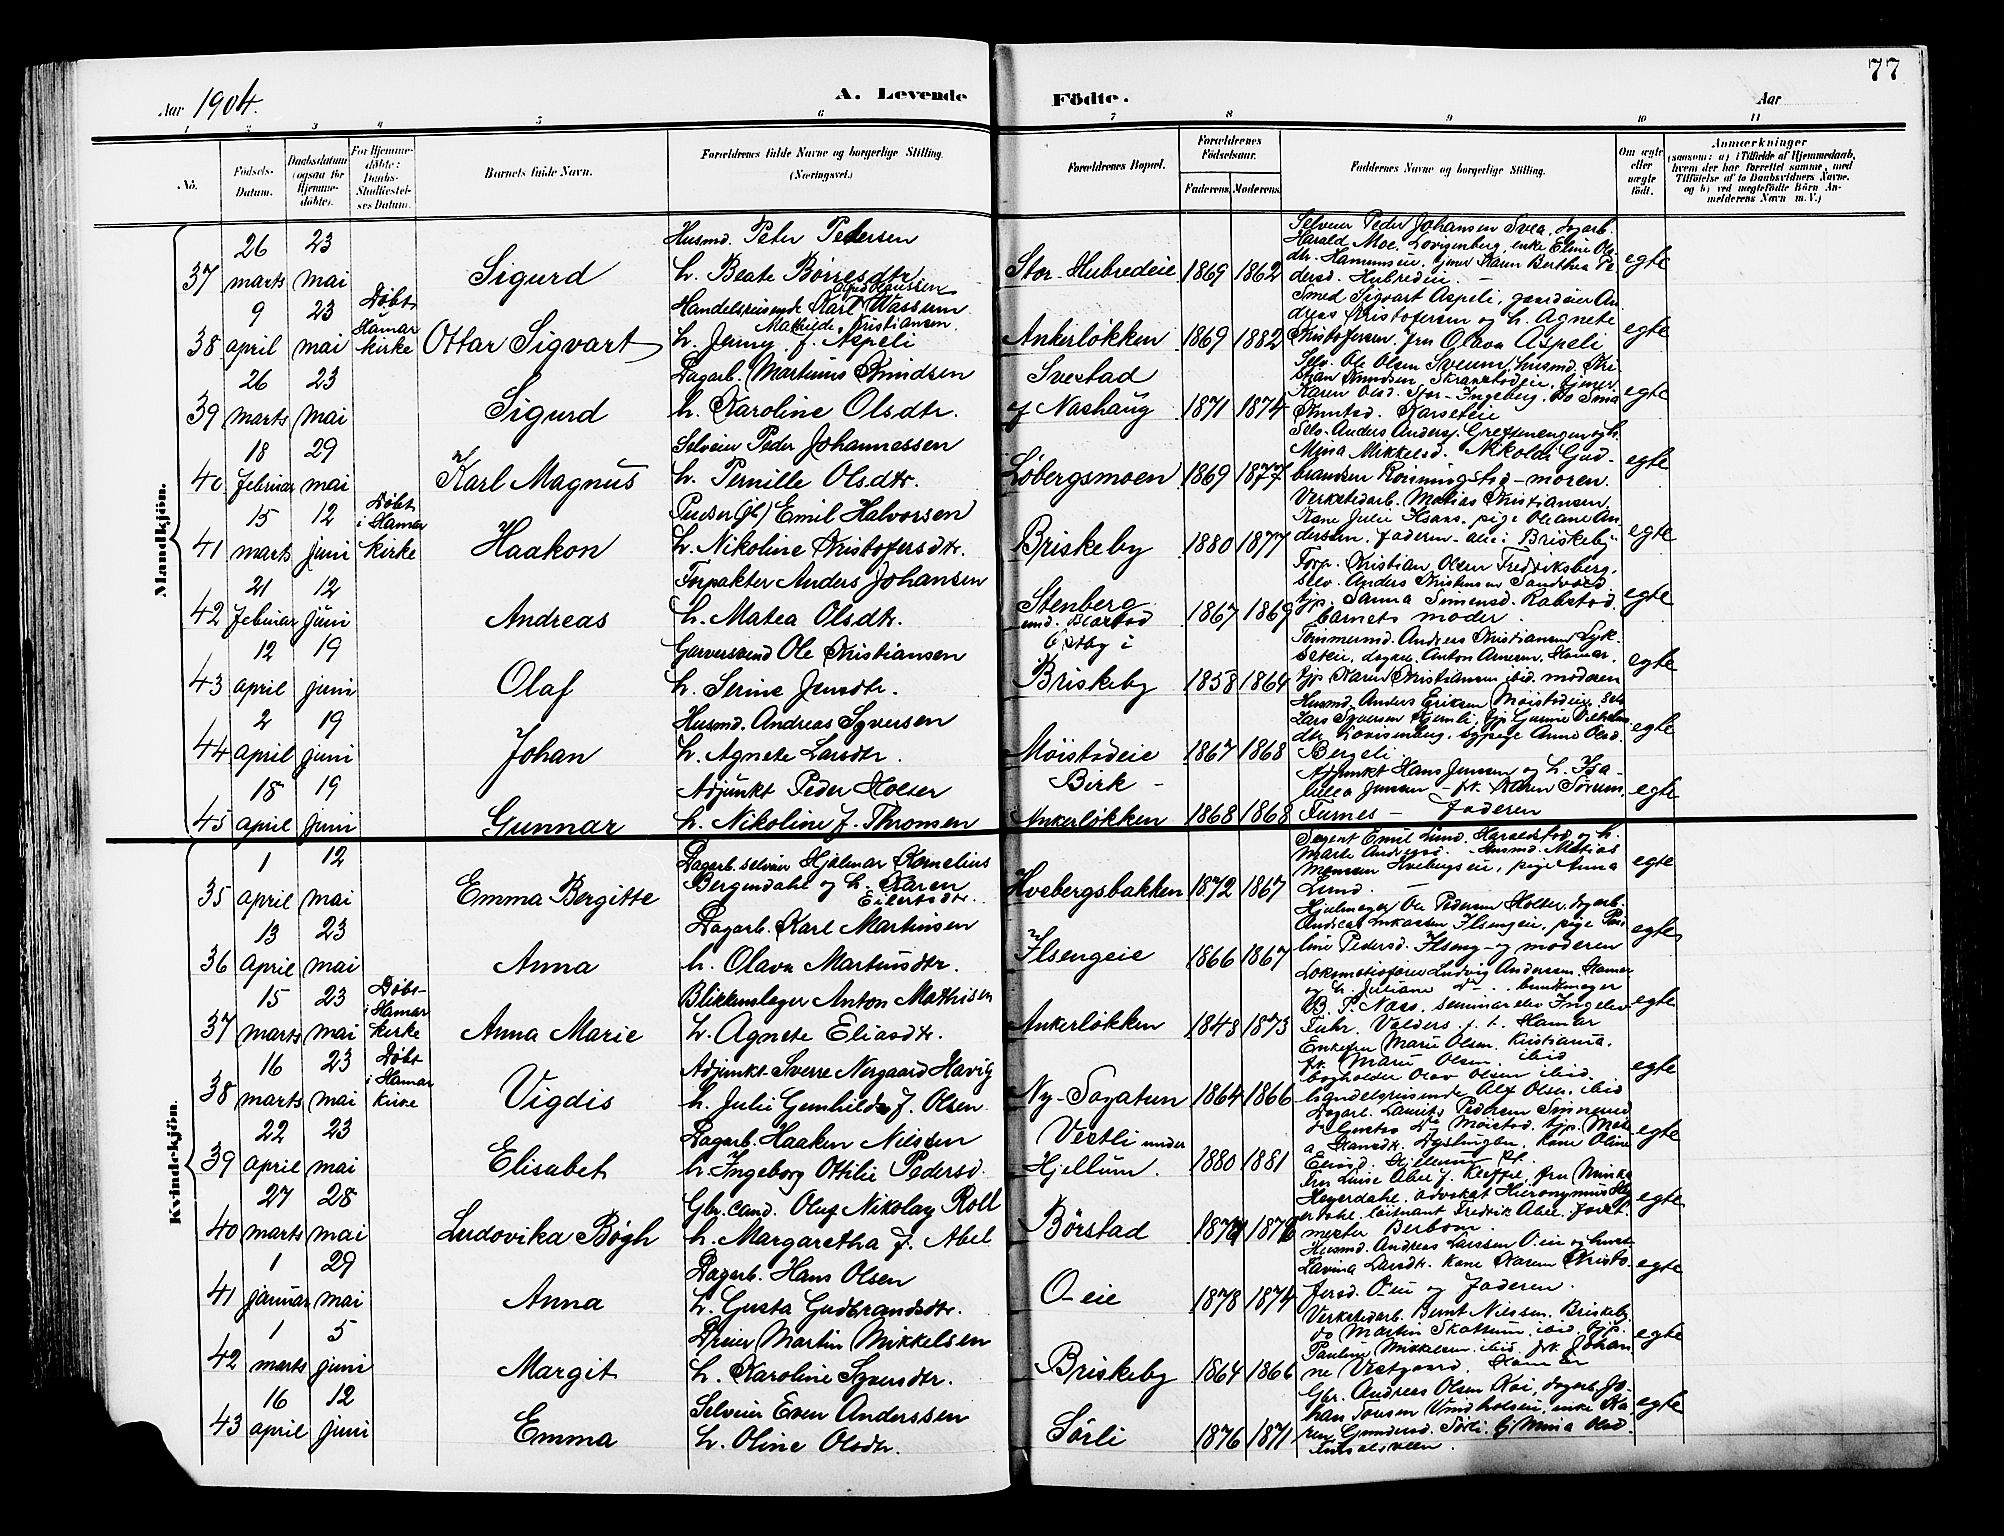 77
Aar 1904. A. Levende Födte. Aar
1 2 3 4 5 6 7 8 9 10 11
No. Födsels-Datum. Daabsdatum (ogsaa for Hjemme-döbte). For Hjemme-döbte: Daabs-Stadfæstel-ses Datum. Barnets fulde Navn. Forældrenes fulde Navne og borgerlige Stilling. (Næringsvei.) Forældrenes Bopæl. Forældrenes Födselsaar. Faderens. Moderens. Faddernes Navne og borgerlige Stilling. Om ægte eller uægte född. Anmærkninger (saasom: a) i Tilfælde af Hjemmedaab, hvem der har forrettet samme, med Tilföielse af to Daabsvidners Navne, og b) ved uægtefödte Börn An-melderens Navn m. V.)
Mandkjön.
37 26 marts 23 mai Sigurd
Husmd. Peter Pedersen
h. Beate Börresdtr.
Stor-Hubredeie 1869 1862
Selveier Peder Johansen Svea, dagarb.
Harald Moe, Lovisenberg, enke Eline Ols-
dtr. Hommseie, tjener Karen Berthea Pe-
dersd. Hubredeie.
egte
38 9 april 23 mai Döbt i Hamar kirke Ottar Sigvart
Handelsreisende Karl Wassum
h. Jenny Mathilde Kristiansen f. Aspeli
Ankerløkken 1869 1882
Smed Sigvart Aspeli, gaardeier An-
dreas Kristofersen og h. Agnete
Kristofersen, frn Olava Aspeli
egte
39 26 marts 23 mai Sigurd
Dagarb. Martinus Knudsen
h. Karoline Olsdtr.
Svestad
af Nashaug 1871 1874
Selv. Ole Olsen Sveum, husmd. Kri-
stian Knudsen, Skranstadeie, tjener
Karen Olsd. Stor-Ingeberg,
Knutsd. Karseteie
egte
40 18 februar 29 mai Karl Magnus
Selveier Peder Johannessen
h. Pernille Olsdtr.
Løbergsmoen 1869 1877
Selv. Anders Anders. Greftenengen og h.
Mina Mikkelsd. Nikolai Gud-
brandsen Rønningstad - moren.
egte
41 15 marts 12 juni Döbt i Hamar kirke Haakon
Pudser (jb) Emil Halvorsen
h. Nikoline Kristofersdtr.
Briskeby 1880 1877
Verkstedarb. Matias Kristiansen,
Kone Julie Isaks. pige Oleane An-
dersen. faderen - alle i Briskeby
egte
42 21 februar 12 juni Andreas
Forpakter Anders Johansen
h. Matea Olsdtr.
Stenberg
und. Bjørstad 1867 1869
Forp. Kristian Olsen Fredriksberg,
Selv. Anders Kristensen Sandvold
tjp. Sanna Simensd. Rabstad.
barnets moder.
egte
43 12 april 19 juni Olaf
Garversvend Ole Kristiansen
h. Serine Jensdtr.
Østby i
Briskeby 1858 1864
Tømmermd. Anders Kristiansen Lyk-
seteie, dagarb. Anton Arnesen, Hamar,
tjp. Karen Kristiansen ibid. moderen
egte
44 2 april 19 juni Johan
Husmd. Andreas Syversen
h. Agnete Larsdtr.
Möistadeie 1867 1868
Husmd. Anders Eriksen Möistadeie, selv.
Lars Syversen Hjemli, tjp. Gunne Vilhelms-
dtr. Lovisenberg, sypige Anne Olsd.
Bergeli
egte
45 18 april 19 juni Gunnar
Adjunkt Peder Holser
h. Nikoline f. Thronsen
Birk -
Ankerløkken 1868 1868
Adjunkt Hans Jensen og h. Isa-
bella Jensen - frk. Karen Sørum,
Furnes - faderen
egte
Kvindekjön.
35 1 april 12 mai Emma Bergitte
Dagarb. selveier Hjalmar Kornelius
Bergendahl og h. Karen
Eilertsdtr.
Hvebergsbakken 1872 1867
Sergent Emil Lund. Haraldstad og h.
Marte Andersd. - Husmd. Matias
Monsen Hvebergseie, pige Anna
Lund.
egte
36 13 april 23 mai Anna
Dagarb. Karl Martinsen
h. Olava Martinusdtr.
Ilsengeie 1866 1867
Hjulmager Ole Pedersen Holter, dagarb.
Andreas Lukassen Ilsengeie, pige Pau-
line Pedersd. Ilseng - og moderen
egte
37 15 marts 23 mai Döbt i Hamar kirke Anna Marie
Blikkenslager Anton Mathisen
h. Agnete Eliasdtr.
Ankerløkken 1848 1873
Lokomotivfører Ludvig Andersen. Hamar
og h. Juliane do. - buntmager
B. P. Nass, seminarelev Ingeleiv
Fuhr, Valders p. t. Hamar
egte
38 16 marts 23 mai Döbt i Hamar kirke Vigdis
Adjunkt Sverre Nergaard Havig
h. Julie Gunhilda f. Olsen
Ny-Sagatun 1864 1866
Enkefru Marie Olsen, Kristiania,
frk. Marie Olsen. ibid
bogholder Olav Olsen ibid.
handelsreisende Alf Olsen, ibid
egte
39 22 april 23 mai Elisabet
Dagarb. Haaken Nilssen
h. Ingeborg Ottilie Pedersd.
Vestli under
Hjellum. 1880 1881
Dagarb. Laurits Pedersen Sinnerud
do Gustav do Möistad, tjp.
Hansdtr. Dystingbo, Kone Oline
Hjellum
egte
40 27 marts 28 mai Ludovika Bøgh
Gbr. cand. Oluf Nikolay Roll
h. Margaretha f. Abel
Børstad
Fru Luise Abel f. Kieffel, fru Minka
Heyerdahl, advokat Hieronymus Hey-
erdahl, löitnant Fredrik Abel, forst-
mester Berbom.
egte
41 1 januar 29 mai Anna
Dagarb. Hans Olsen
h. Gusta Gudbrandsdtr.
O-eie 1878 1874
Husmd. Andreas Larssen O-eie og hust.
Lavina Larsdtr. Kone Karen Kristo-
fersd. O-eie og faderen.
egte
42 1 marts 5 juni Margit
Dreier Martin Mikkelsen
h. Karoline Syversdtr.
Briskeby 1864 1866
Verkstedarb. Bernt Nilssen, Briskeby
do Martin Skattum, ibid, tjp.
Pauline Mikkelsen, ibid, frk. Johan-
ne Vestgaard. Hamar
egte
43 16 april 12 juni Emma
Selveier Even Anderssen
h. Oline Olsdtr.
Sörli 1876 1871
Gbr. Andreas Olsen Koi, dagarb. Jo-
han Tonsen Vindholseie, enke Ka-
ren Gundersd. Sörli. Mina Olsd.
egte